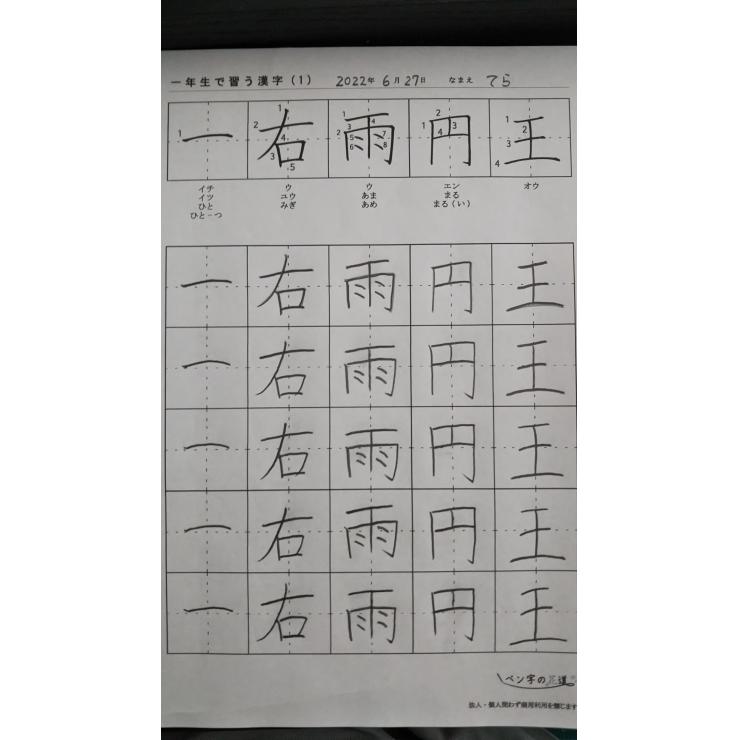 一年生で習う漢字（1） 2022年 6月27日 なまえ てら
一 右 雨 円 王
1 1 2 3 4 5 1 2 3 4 5 6 7 8 1 2 3 4 1 2 3 4
イチ ウ ウ エン オウ
イツ ユウ あま まる
ひと みぎ あめ まる（い）
ひと－つ
一 右 雨 円 王
一 右 雨 円 王
一 右 雨 円 王
一 右 雨 円 王
一 右 雨 円 王
ペン字の花道
法人・個人問わず商用利用を禁じます